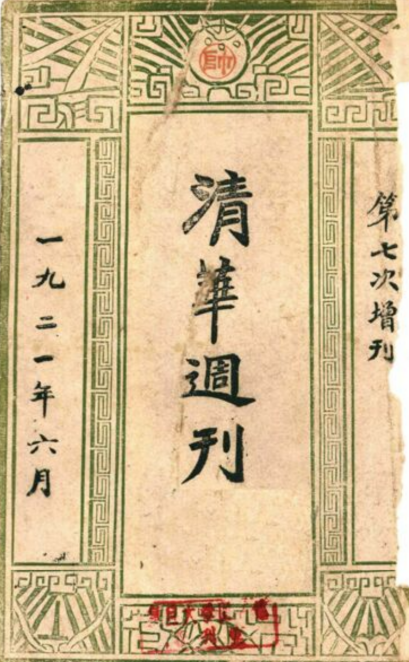 第七次增刊
清華週刊
一九二一年六月